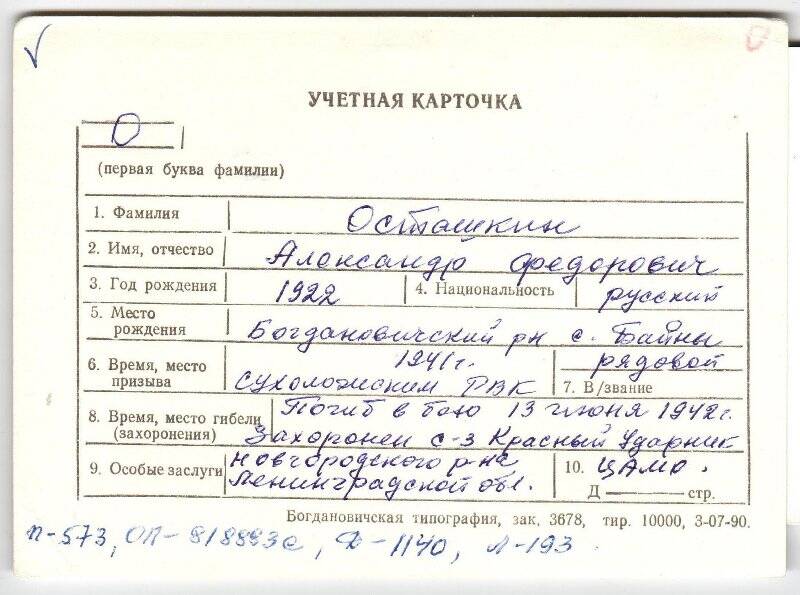 УЧЕТНАЯ КАРТОЧКА
О
(первая буква фамилии)
1. Фамилия Осташкин
2. Имя, отчество Александр Федорович
3. Год рождения 1922 4. Национальность русский
5. Место рождения Богдановичский рн с. Байны
6. Время, место призыва 1941г. Сухоложским РВК 7. В/звание рядовой
8. Время, место гибели (захоронения) Погиб в бою 13 июня 1942г.
Захоронен с-з Красный Ударник
9. Особые заслуги Новгородского р-на Ленинградской обл. 10. ЦАМО.
Д — стр.
Богдановичская типография, зак. 3678, тир. 10000, 3-07-90.
п-573, ОП- 818883с, Д-1140, Л-193